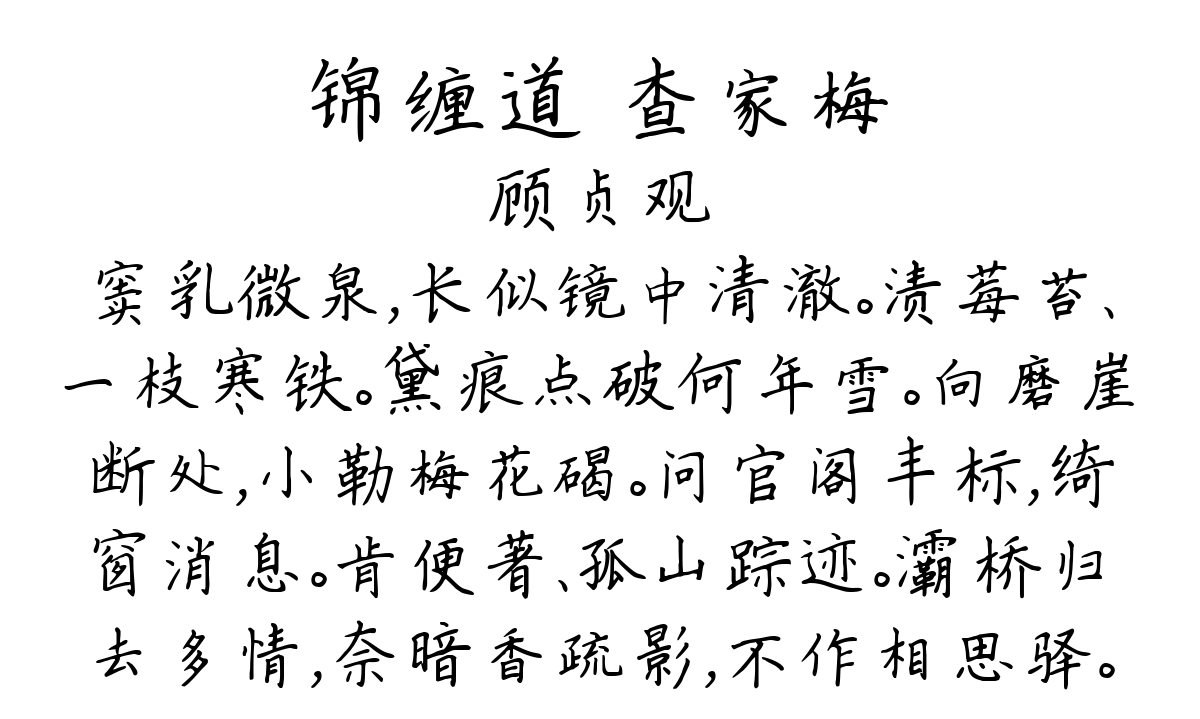 锦缠道 查家梅
顾贞观
窦乳微泉,长似镜中清澈。渍莓苔、
一枝寒铁。黛痕点破何年雪。向磨崖
断处,小勒梅花碣。问官阁丰标,绮
窗消息。肯便著、孤山踪迹。灞桥归
去多情,奈暗香疏影,不作相思驿。